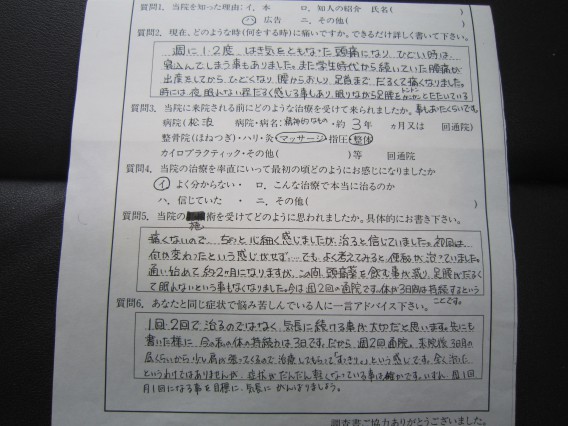 質問1. 当院を知った理由:イ. 本 ロ. 知人の紹介 氏名(
ハ. 広告 ニ. その他( )
質問2. 現在、どのような時(何をする時)に痛いですか。できるだけ詳しく書いて下さい。
週に1・2度、はき気をともなった頭痛になり、ひどい時は、
寝込んでしまう事もありました。また学生時代から続いていた腰痛が
出産をしてから、ひどくなり腰からおしり、足首まで、だるくて痛くなりました。
時には夜眠れない程だるく感じる事もあり眠りながら足腰を トントン とたたいている
事もあったくらいです。
質問3. 当院に来院される前にどのような治療を受けて来られましたか。
病院(松浪 病院・病名:精神的なもの・約 3年 ヵ月又は 回通院)
整骨院(ほねつぎ)・ハリ・灸・マッサージ・指圧・整体
カイロプラクティック・その他( )等 回通院
質問4. 当院の治療を率直にいって最初の頃どのようにお感じになりましたか
イ. よく分からない・ ロ. こんな治療で本当に治るのか
ハ. 信じていた ・ ニ. その他( )
質問5. 当院の 施術を受けてどのように思われましたか。具体的にお書き下さい。
痛くないので、ちょっと心細く感じましたが、治ると信じていました。初回は、
何か変わったという感じがせず…。でも、よく考えてみると、便秘が治っていました。
通い始めて約2ヶ月になりますが、この頃、頭痛薬を飲む事が減り、足腰がだるく
て眠れないという事もなくなりました。今は週2回の通院です。体が3日間は持続するという
ことです。
質問6. あなたと同じ症状で悩み苦しんでいる人に一言アドバイス下さい。
1回・2回で治るのではなく、気長に続ける事が大切だと思います。先にも
書いた様に、今の私の体の持続力は3日です。だから、週2回通院。来院後3日目の
昼くらいから少し肩が張ってくるので、治療してもらって「すっきり。」という感じです。全く治った
というわけではありませんが、症状がだんだん軽くなっている事は確かです。いずれ、週1回
月1回になる事を目標に、気長にがんばりましょう。
調査書ご協力ありがとうございました。